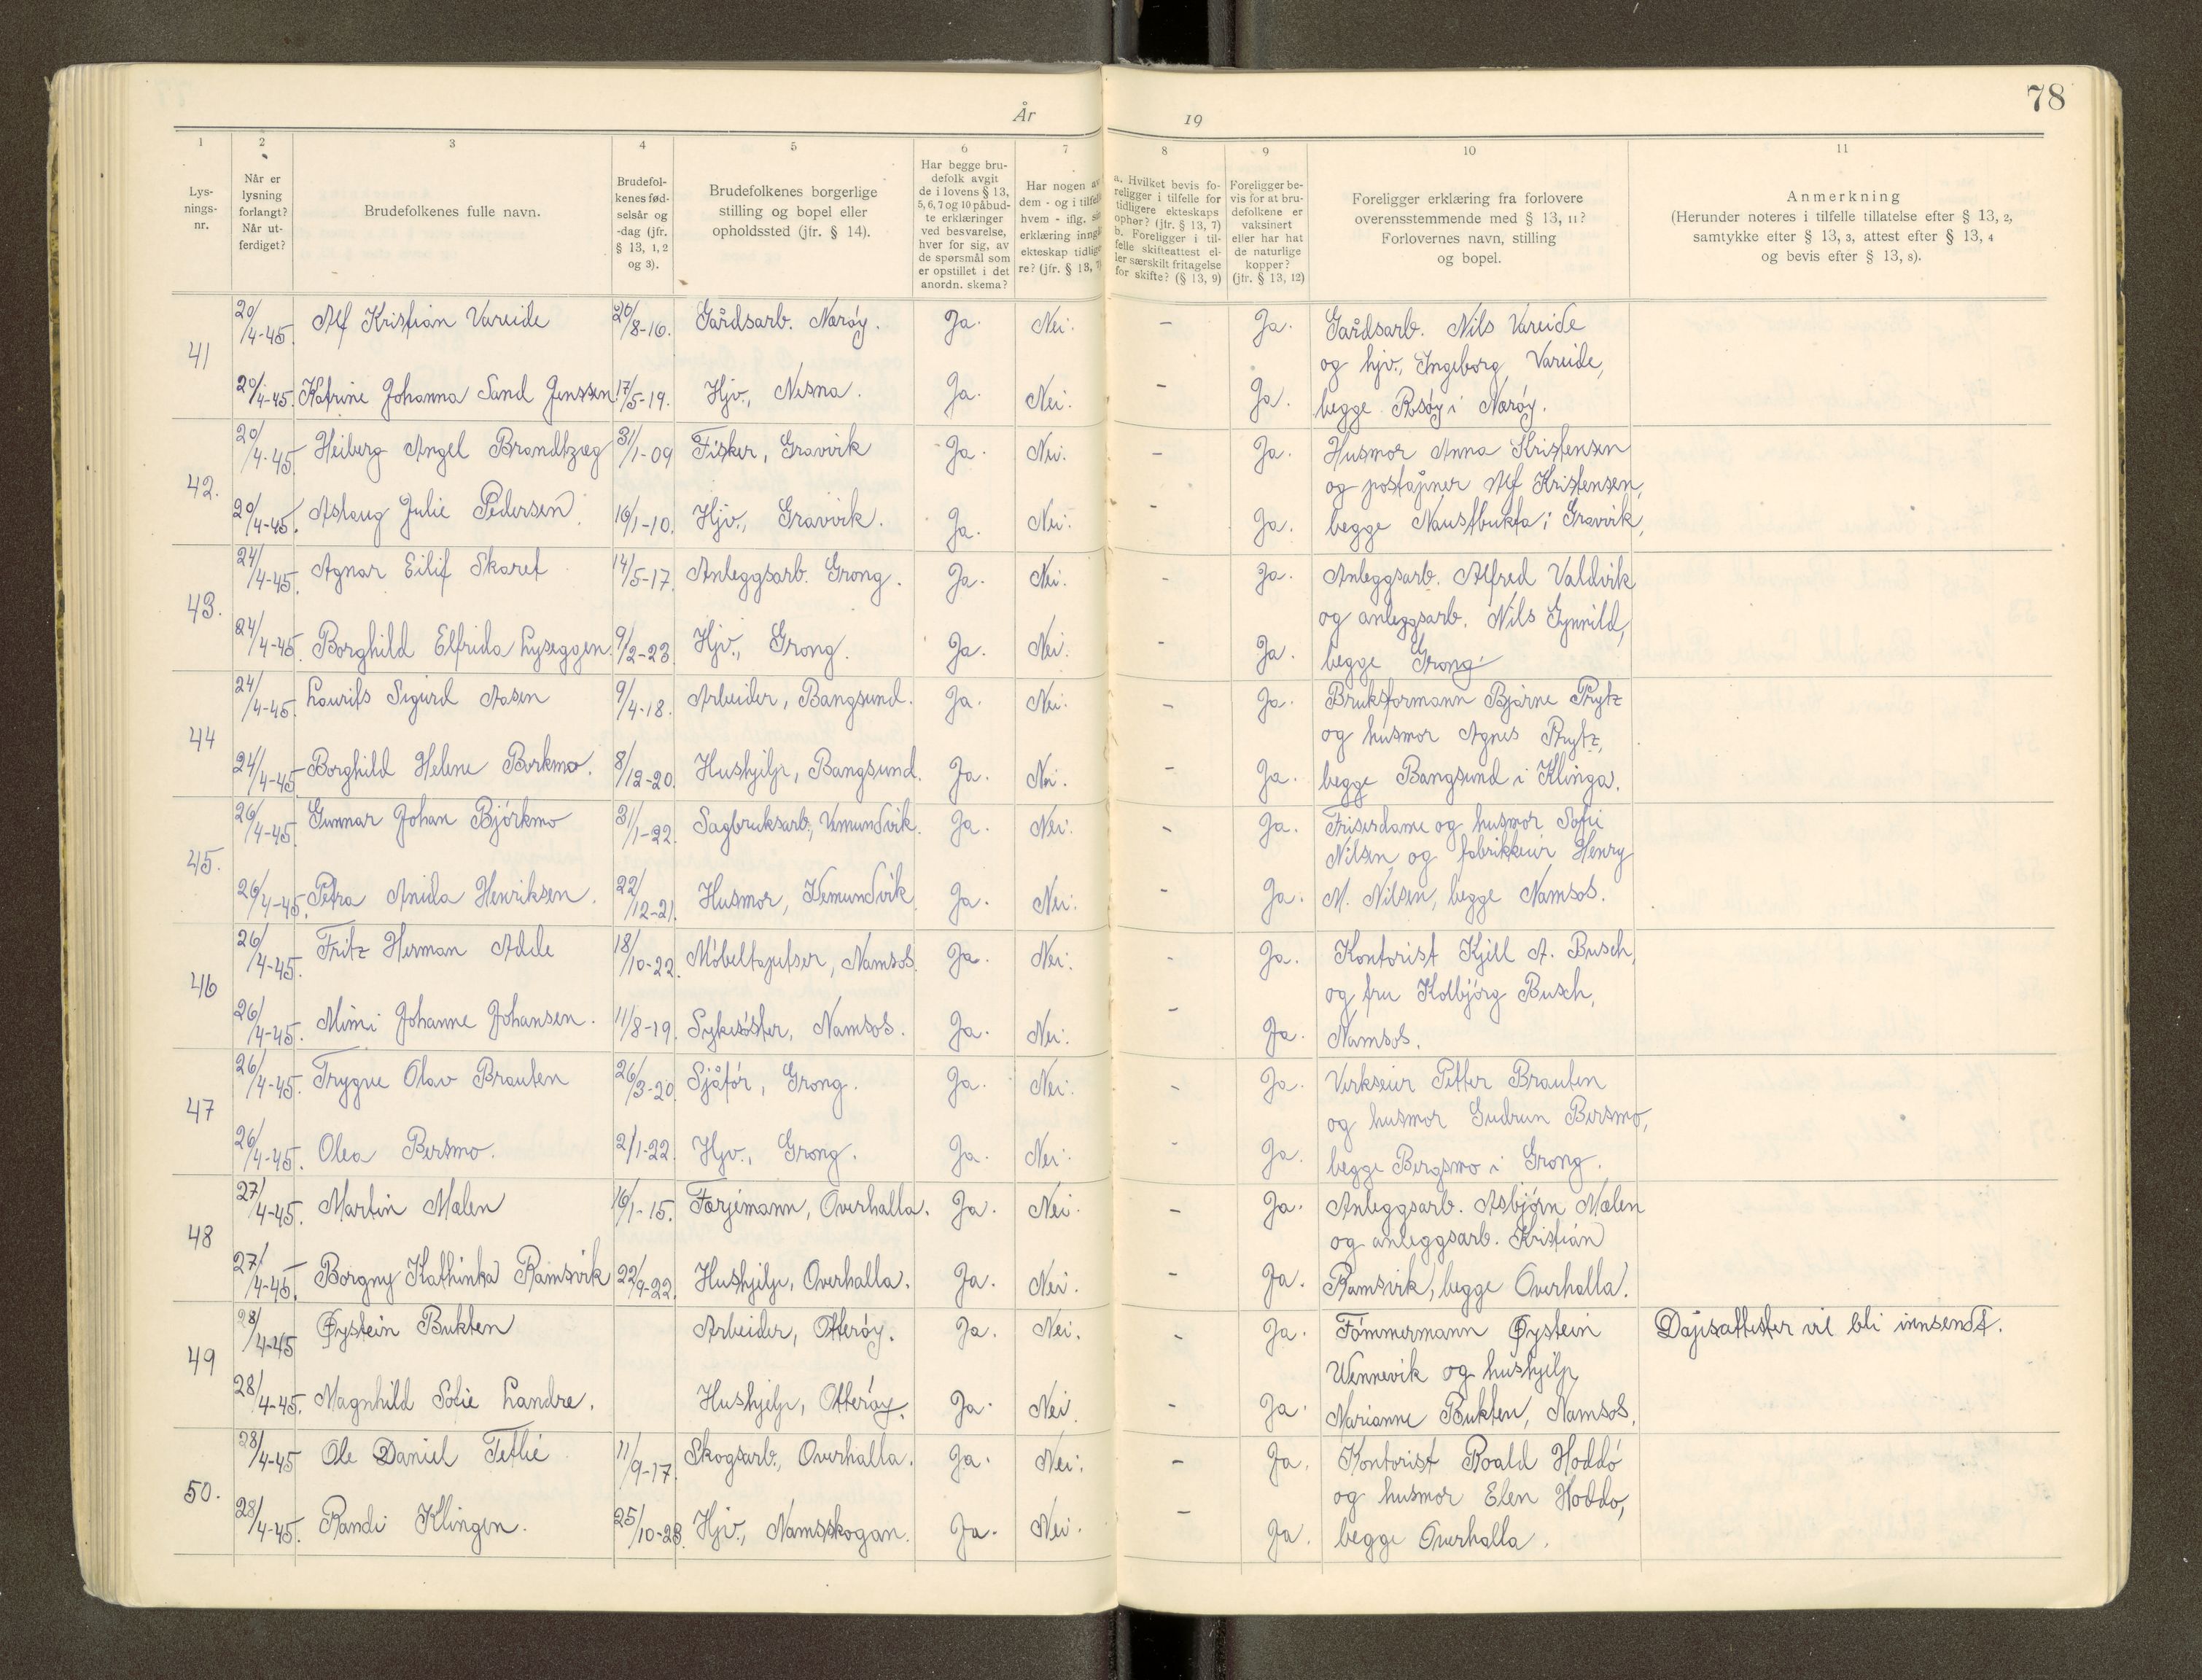 78
År 19
1 2 3 4 5 6 7 8 9 10 11
Lys-
nings-
nr.
Når er
lysning
forlangt?
Når ut-
ferdiget?
Brudefolkenes fulle navn.
Brudefol-
kenes fød-
selsår og
-dag (jfr.
§ 13, 1, 2
og 3).
Brudefolkenes borgerlige
stilling og bopel eller
opholdssted (jfr. § 14).
Har begge bru-
defolk avgit
de i lovens § 13,
5, 6, 7 og 10 påbud-
te erklæringer
ved besvarelse,
hver for sig, av
de spørsmål som
er opstillet i det
anordn. skema?
Har nogen av
dem - og i tilfelle
hvem - iflg. sin
erklæring inngå
ekteskap tidlige
re? (jfr. § 13, 7)
a. Hvilket bevis fo-
religger i tilfelle for
tidligere ekteskaps
ophør? (jfr. § 13, 7)
b. Foreligger i til-
felle skifteattest el-
ler særskilt fritagelse
for skifte? (§ 13, 9)
Foreligger be-
vis for at bru-
defolkene er
vaksinert
eller har hat
de naturlige
kopper?
(jfr. § 13, 12)
Foreligger erklæring fra forlovere
overensstemmende med § 13, 11?
Forlovernes navn, stilling
og bopel.
Anmerkning
(Herunder noteres i tilfelle tillatelse efter § 13, 2,
samtykke efter § 13, 3, attest efter § 13, 4
og bevis efter § 13, 8).
41
20/4-45. Alf Kristian Vareide 26/8-16. Gårdsarb. Nærøy. Ja. Nei. - Ja. Gårdsarb. Nils Vareide
og hjv., Ingeborg Vareide,
20/4-45. Katrine Johanna Sand Jenssen 17/5-19. Hjv., Nesna. Ja. Nei. - Ja. begge Rosøy i Nærøy.
42.
20/4-45. Heiberg Angel Brandtzæg 31/1-09 Fisker, Gravvik Ja. Nei. - Ja. Husmor Anna Kristensen
og poståpner Alf Kristensen,
20/4-45. Aslaug Julie Pedersen 16/1-10. Hjv., Gravvik. Ja. Nei. - Ja. begge Naustbukta i Gravvik,
43.
24/4-45. Agnar Eilif Skaret 14/5-17. Anleggsarb. Grong. Ja. Nei. - Ja. Anleggsarb. Alfred Valdvik
og anleggsarb. Nils Gynnild,
24/4-45. Borghild Elfrida Lyseggen. 9/2-23. Hjv., Grong. Ja. Nei. - Ja. begge Grong
44
24/4-45. Laurits Sigurd Aasen 9/4-18. Arbeider, Bangsund. Ja. Nei. - Ja. Bruksformann Bjarne Prytz
og husmor Agnes Prytz,
24/4-45 Borghild Helene Borkmo. 8/12-20. Hushjelp, Bangsund. Ja. Nei. - Ja. begge Bangsund i Klinga.
45.
26/4-45. Gunnar Johan Björkmo 31/1-22. Sagbruksarb., Vemundvik. Ja. Nei. - Ja. Friserdame og husmor Sofie
Nilsen og fabrikkeier Henry
26/4-45. Petra Anida Henriksen. 22/12-21. Husmor, Vemundvik Ja. Nei. - Ja. M. Nilsen, begge Namsos.
46
26/4-45. Fritz Herman Adde 18/10-22. Möbeltapetser, Namsos. Ja. Nei. - Ja. Kontorist Kjell A. Busch,
og fru Kolbjörg Busch,
26/4-45. Mimi Johanne Johansen. 11/8-19. Sykesöster, Namsos. Ja. Nei. - Ja. Namsos.
47
26/4-45. Trygve Olav Brauten 26/3-20. Sjåför, Grong. Ja. Nei. - Ja. Verkseier Petter Brauten
og husmor Gudrun Bersmo,
26/4-45. Olea Bersmo. 2/1-22. Hjv., Grong. Ja. Nei. - Ja. begge Bergsmo i Grong.
48
27/4-45. Martin Mælen 16/1-15. Færjemann, Overhalla. Ja. Nei. - Ja. Anleggsarb. Asbjörn Mælen
og anleggsarb. Kristian
27/4-45 Borgny Kathinka Ramsvik 22/9-22. Hushjelp, Overhalla. Ja. Nei. - Ja. Ramsvik, begge Overhalla.
49
28/4-45 Øystein Bukten Arbeider, Otterøy. Ja. Nei. - Ja. Tömmermann Øystein Dåpsattester vil bli innsendt.
Wennevik og hushjelp
28/4-45. Magnhild Sofie Landre. Hushjelp, Otterøy. Ja. Nei. - Ja. Marianne Bukten, Namsos.
50.
28/4-45 Ole Daniel Tetlie 11/9-17. Skogsarb., Overhalla. Ja. Nei. - Ja. Kontorist Roald Hoddö
og husmor Elen Hoddo,
28/4-45. Randi Klingen. 25/10-23. Hjv., Namsskogan. Ja. Nei. - Ja. begge Overhalla.